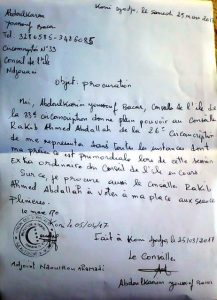 Abdoulkarim
Youssouf Bacar
Koni Djodjo, le samedi 25 mars 20
Tel. 3210585-3426085
Circonscription N°33
Conseil de l'île
Ndzouani
Objet: procuration
Moi, Abdoulkarim Youssouf Bacar, Conseille de l'île de
la 33e circonscription donne plein pouvoir au Conseille
Rakib Ahmed Abdallah de la 26e Circonscription
de me representer dans toutes les instances dont
ma présence est primordiale lors de cette session
Extra ordinaire du Conseil de l'île en cours
Sur ce, je procure aussi le Conseille Rakib
Ahmed Abdallah à voter à ma place aux séances
Plenieres.
le 05/04/17
Fait à Koni Djodjo, le 25/03/2017
Le Conseille
Adjoint
Abdoulkarim Youssouf Bacar